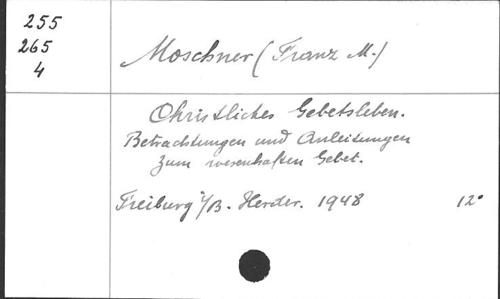 255
265
4
Moschner (Franz M.)
Christliches Gebetsleben.
Betrachtungen und Anleitungen
zum wesenhaften Gebet.
Freiburg i/B. Herder. 1948 12°